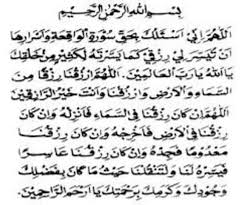 بِسْمِ اللهِ الرَّحْمٰنِ الرَّحِيْمِ
اَللّٰهُمَّ اِنِّيْ اَسْئَلُكَ بِحَقِّ سُوْرَةِ الْوَاقِعَةِ وَاَسْرَارِهَا
اَنْ تُيَسِّرَلِيْ رِزْقِيْ كَمَا يَسَّرْتَهُ لِكَثِيْرٍ مِنْ خَلْقِكَ
يَا اَللهُ يَارَبَّ الْعَالَمِيْنَ. اَللّٰهُمَّ ارْزُقْنَا رِزْقًا مِنَ
السَّمَاءِ وَالْاَرْضِ وَارْزُقْنَا وَاَنْتَ خَيْرُ الرَّازِقِيْنَ
اَللّٰهُمَّ اِنْ كَانَ رِزْقُنَا فِي السَّمَاءِ فَاَنْزِلْهُ وَاِنْ كَانَ
رِزْقُنَا فِي الْاَرْضِ فَاَخْرِجْهُ وَاِنْ كَانَ رِزْقُنَا
مَعْدُوْمًا فَجِدْهُ وَاِنْ كَانَ رِزْقُنَا عَاسِرًا
فَيَسِّرْهُ لَنَا وَلِتَنْقُلَنَا حَيْثُ مَا كَانَ بِفَضْلِكَ
وَجُوْدِكَ وَكَرَمِكَ بِرَحْمَتِكَ يَا اَرْحَمَ الرَّاحِمِيْنَ